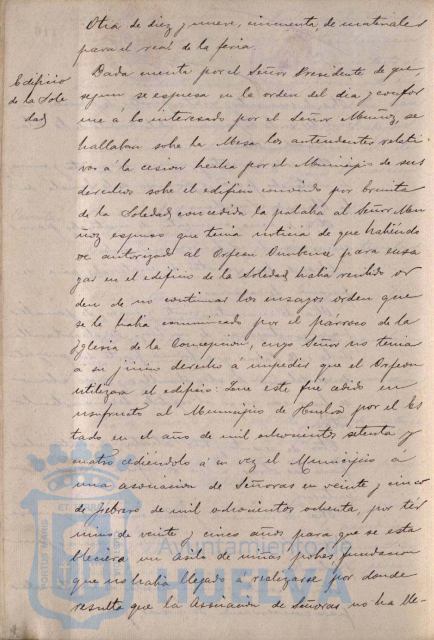 Otra de diez y nueve, cincuenta, de materiales
para el real de la feria.
Edificio
de la Sole
dad
Dada cuenta por el Señor Presidente de que,
segun se espresa en la orden del dia y confor
me á lo interesado por el Señor Muñoz, se
hallaban sobre la Mesa los antecedentes relati-
vos á la cesion hecha por el Municipio de sus
derechos sobre el edificio conocido por Ermita
de la Soledad, concedida la palabra al Señor Mu
ñoz espuso que tenia noticia de que habiendo
se autorizado al Orfeon Onubense para ensa
yar en el edificio de la Soledad, habia recibido or
den de no continuar los ensayos, orden que
se le habia comunicado por el párroco de la
Iglesia de la Concepcion, cuyo Señor no tenia
á su juicio derecho á impedir que el Orfeon
utilizara el edificio: Que este fué cedido en
usufructo al Municipio de Huelva por el Es
tado en el año de mil ochocientos setenta y
cuatro cediéndolo á su vez el Municipio a
una asociacion de Señoras en veinte y cinco
de febrero de mil ochocientos ochenta, por tér
mino de veinte y cinco años para que se esta
bleciera un Asilo de niñas pobres, fundacion
que no habia llegado á realizarse por donde
resulta que la Asociacion de Señoras no ha lle-
PORTUS MARIS ET TERRAE
Ayuntamiento de
HUELVA